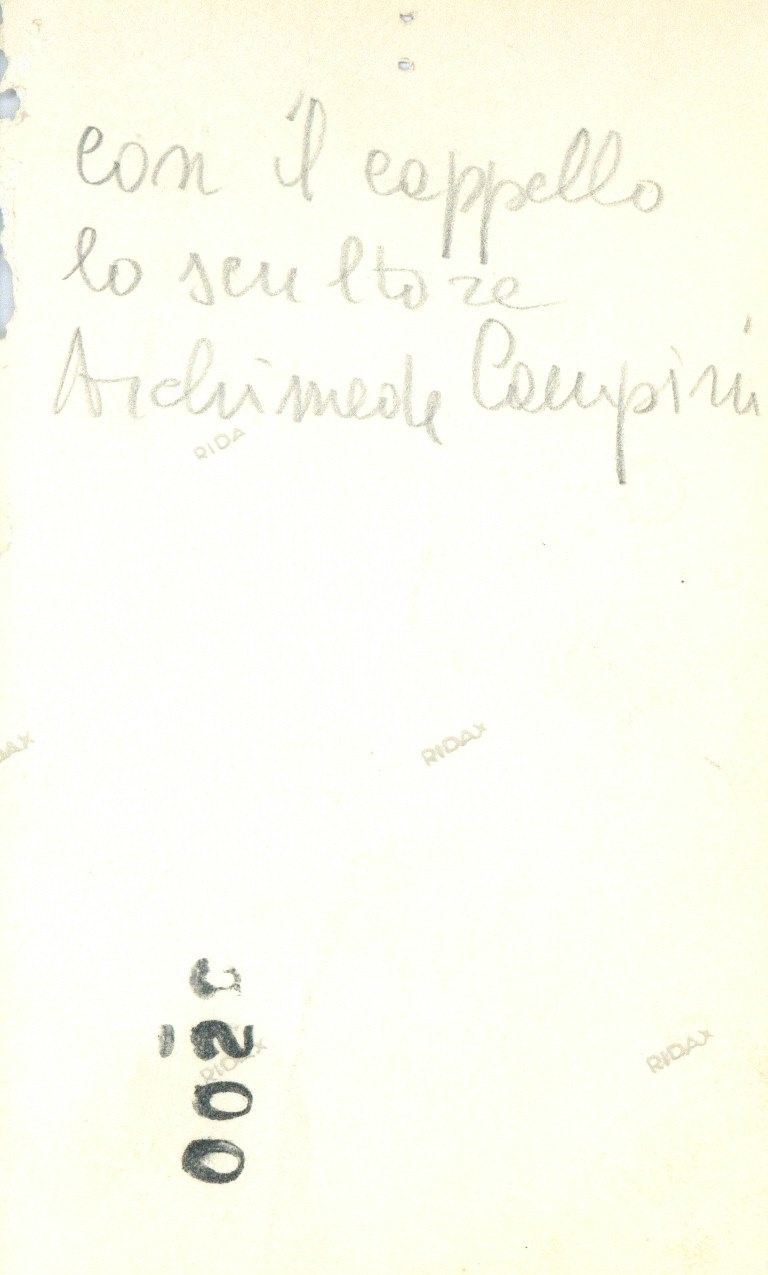 con il cappello
lo scultore
Archimede Campini
RIDA
DAX
RIDAX
RIDAX
RIDAX
002